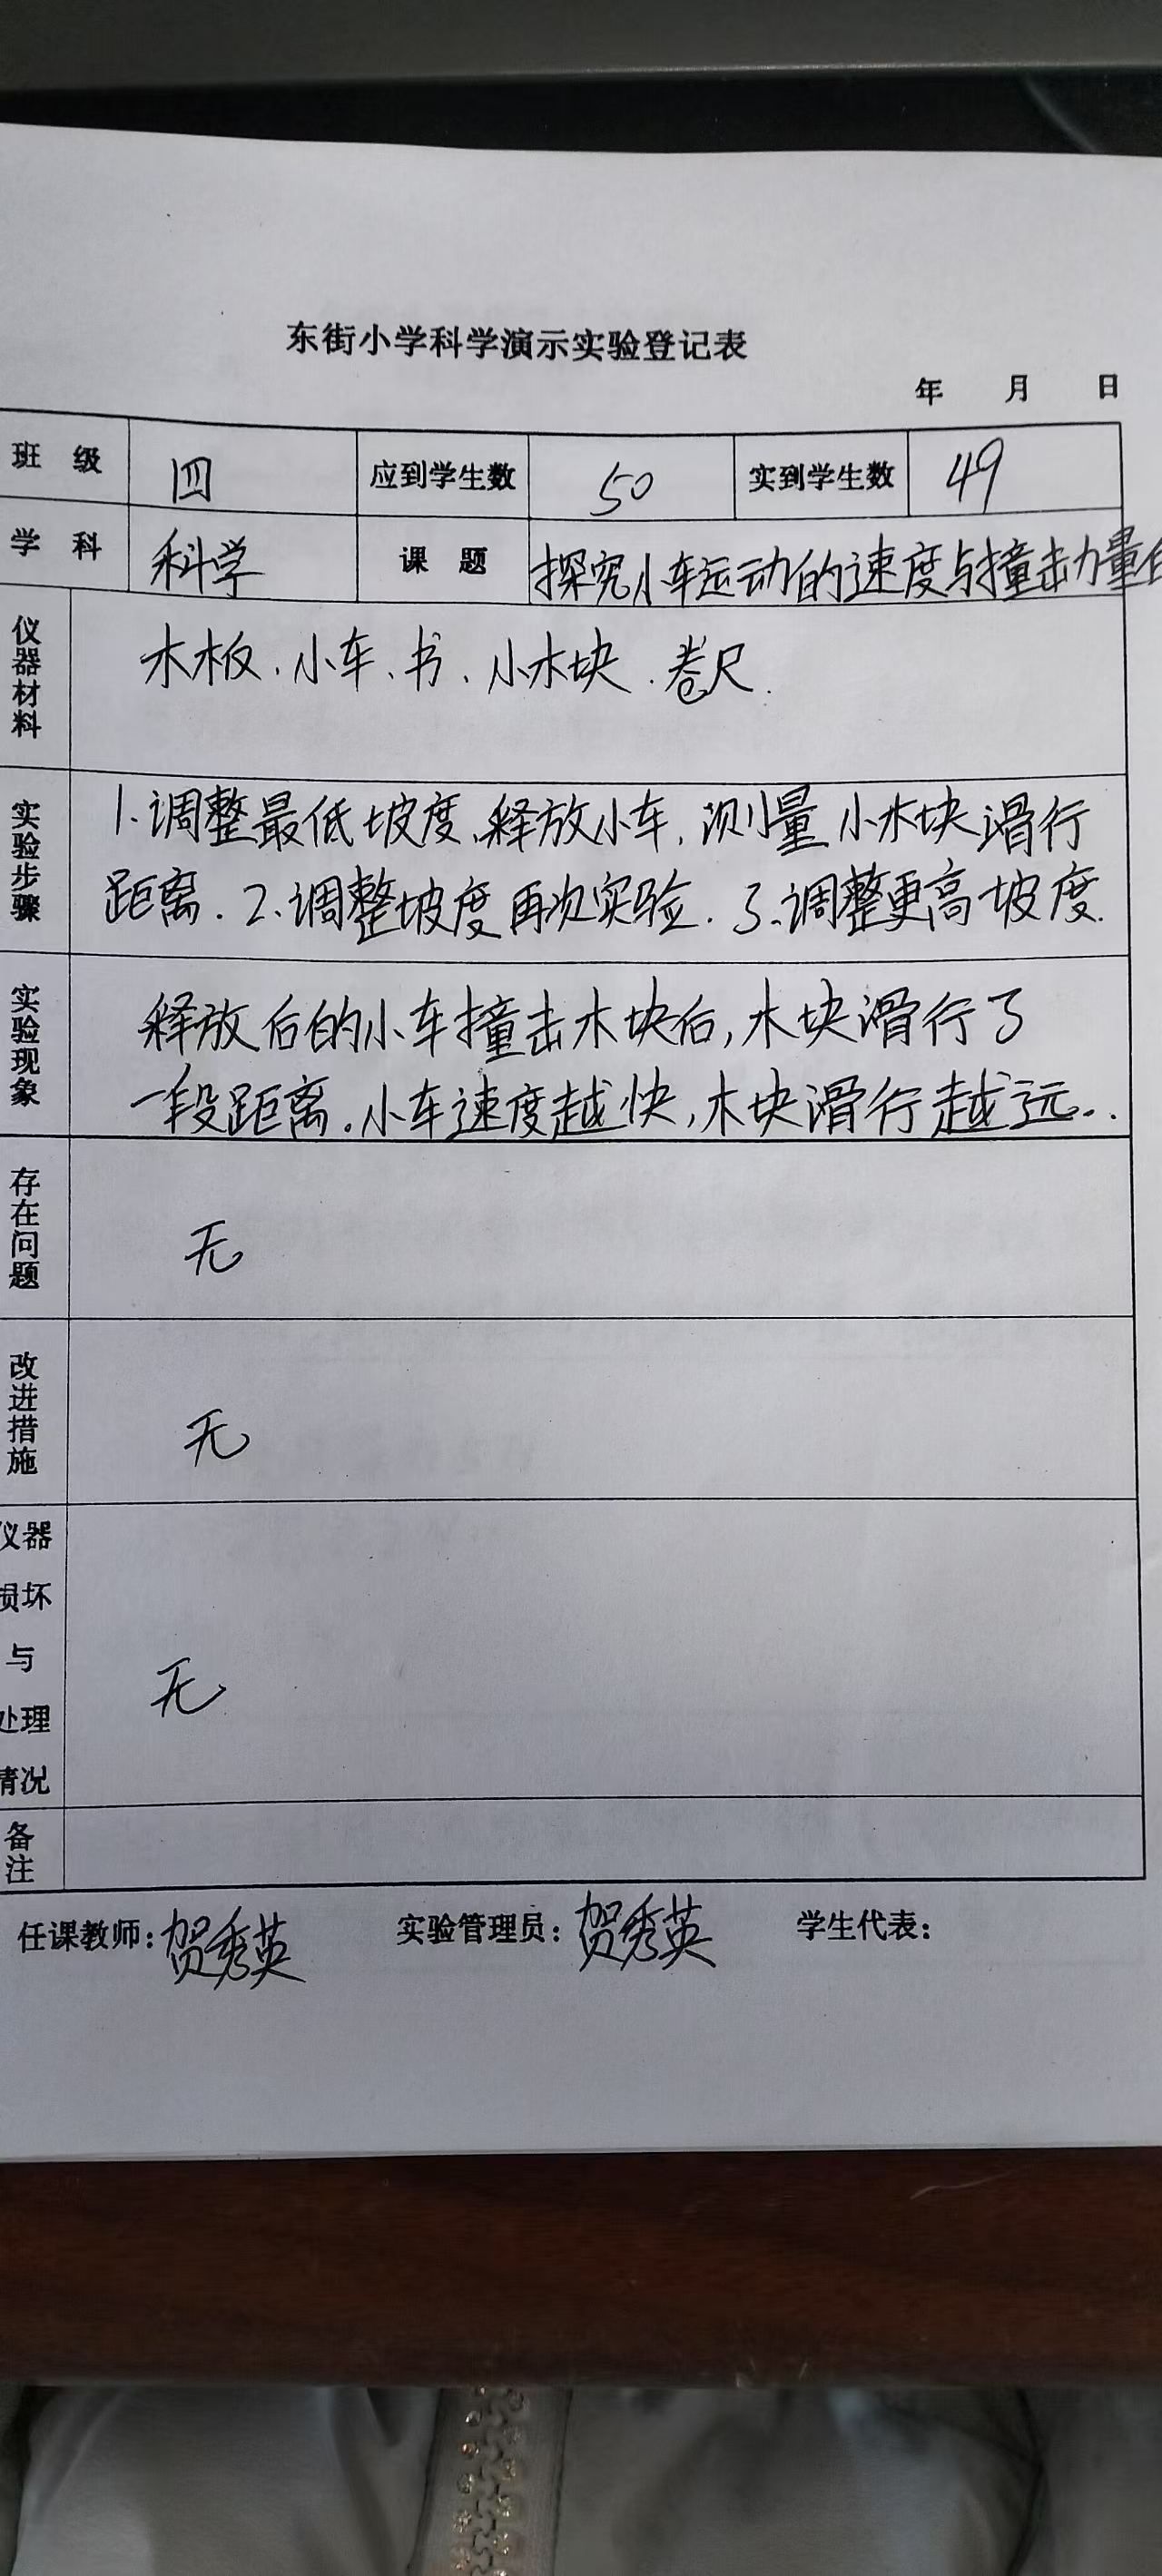 东街小学科学演示实验登记表
年 月 日
班 级 四 应到学生数 50 实到学生数 49
学 科 科学 课 题 探究小车运动的速度与撞击力量
仪器材料 木板、小车、书、小木块、卷尺.
实验步骤 1.调整最低坡度、释放小车,测量小木块滑行
距离.2、调整坡度再次实验.3、调整更高坡度.
实验现象 释放后的小车撞击木块后,木块滑行了
一段距离.小车速度越快,木块滑行越远..
存在问题 无
改进措施 无
仪器
损坏
与
处理
情况
无
备注
任课教师:贺秀英 实验管理员:贺秀英 学生代表: